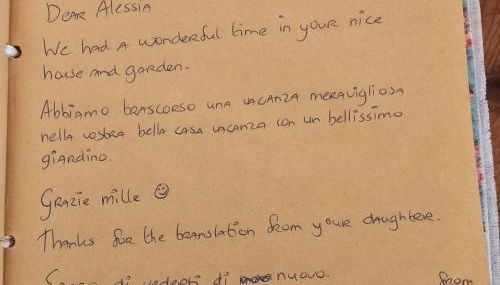 Dear Alessia
We had a wonderful time in your nice
house and garden.
Abbiamo trascorso una vacanza meravigliosa
nella vostra bella casa vacanza con un bellissimo
giardino.
Grazie mille ☺
Thanks for the translation from your daughtere.
di vederti di nuovo. from